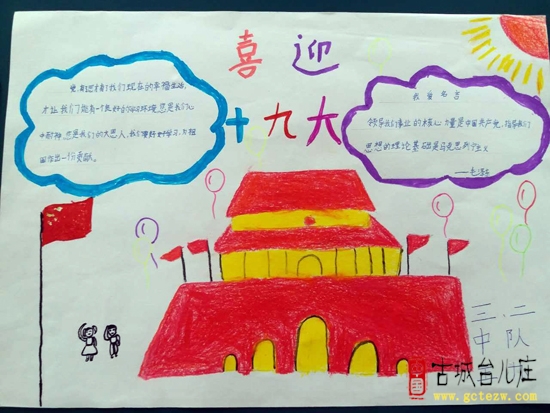 喜迎
十九大
党,有您才有我们现在的幸福生活,
才让我们能有一个良好的学习环境,您是我们心
中的神,您是我们的大恩人,我们要好好学习,为祖
国作出一份贡献。
我党名言
领导我们事业的核心力量是中国共产党,指导我们
思想的理论基础是马克思列宁主义
——毛泽东
三、二
中队
古城台儿庄
www.gctezw.com